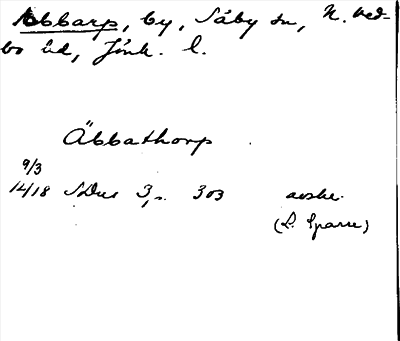 Abbarp, by, Säby sn, N. Ved-
bo hd, Jönk. l.
Äbbathorp
9/3
14/18 SDns 3, s. 303 avskr.
(S. Sparre)